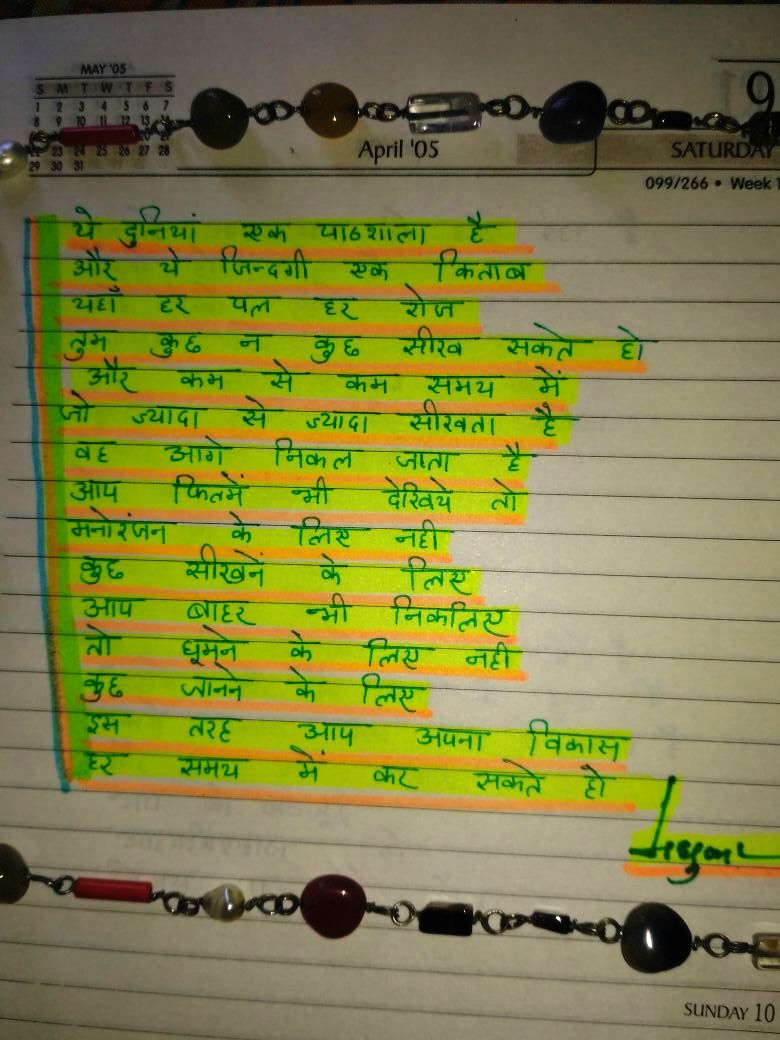 MAY '05
S M T W T F S
1 2 3 4 5 6 7
8 9 10 11 12 13
23 24 25 26 27 28
29 30 31
9
April '05
SATURDAY
099/266 • Week 1
ये दुनियां एक पाठशाला है
और ये जिन्दगी एक किताब
यहाँ हर पल हर रोज
तुम कुछ न कुछ सीख सकते हो
और कम से कम समय में
जो ज्यादा से ज्यादा सीखता है
वह आगे निकल जाता है
आप फिल्में भी देखिये तो
मनोरंजन के लिए नही
कुछ सीखनें के लिए
आप बाहर भी निकलिए
तो घूमने के लिए नही
कुछ जानने के लिए
इस तरह आप अपना विकास
हर समय में कर सकते हो
SUNDAY 10